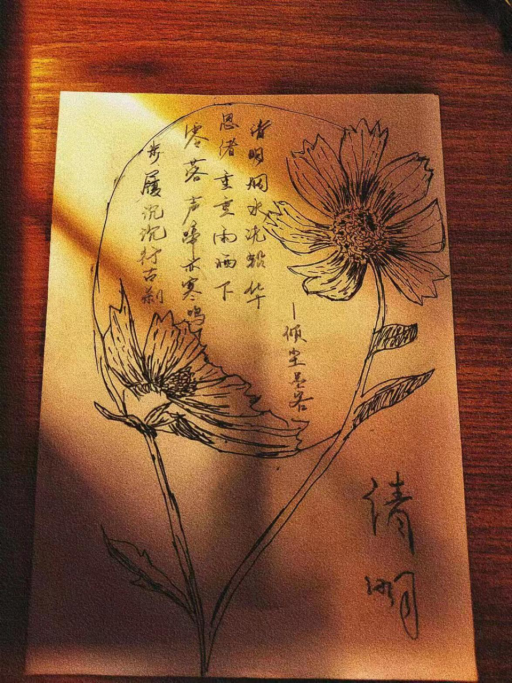 清明润水洗铅华
思渚重重雨洒下
零落声啼亦寒鸣
步履沉沉行古刹
—倾尘墨客
清明